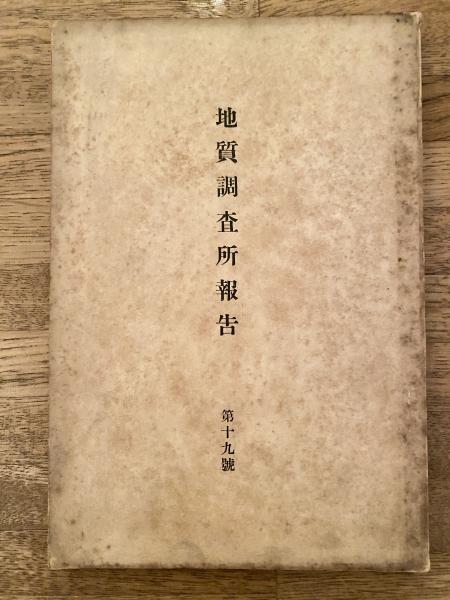 地質調査所報告
第十九號